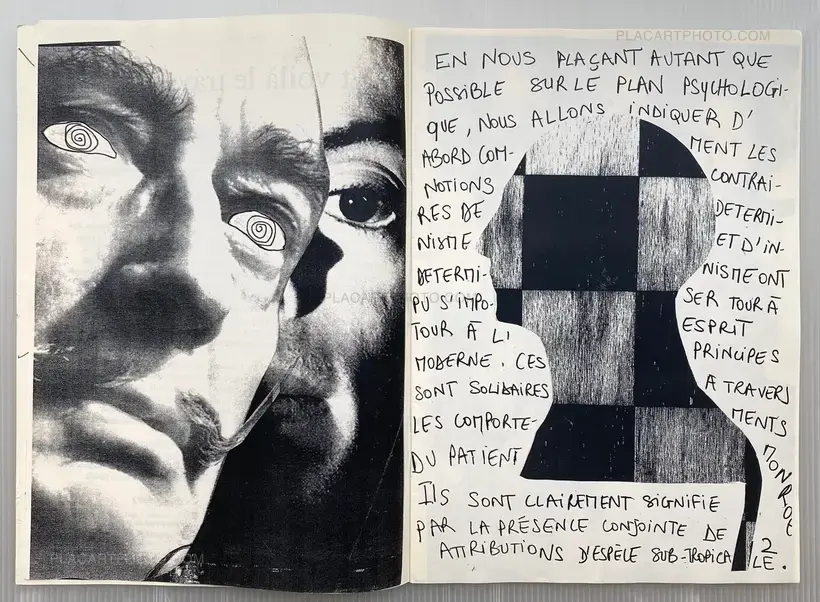 PLACARTPHOTO.COM
EN NOUS PLAÇANT AUTANT QUE
POSSIBLE SUR LE PLAN PSYCHOLOGI-
QUE, NOUS ALLONS INDIQUER D'
ABORD COM- MENT LES
NOTIONS CONTRAI-
RES DE DETERMI-
NISME ET D'IN-
DETERMI- NISME ONT
PU S'IMPO- SER TOUR À
TOUR À L' ESPRIT
MODERNE. CES PRINCIPES
SONT SOLIDAIRES A TRAVERS
LES COMPORTE- MENTS
DU PATIENT MONROE
ILS SONT CLAIREMENT SIGNIFIE
PAR LA PRÉSENCE CONJOINTE DE 2
ATTRIBUTIONS D'ESPÈCE SUB-TROPICALE.
PLACARTPHOTO.COM
PLACARTPHOTO.COM